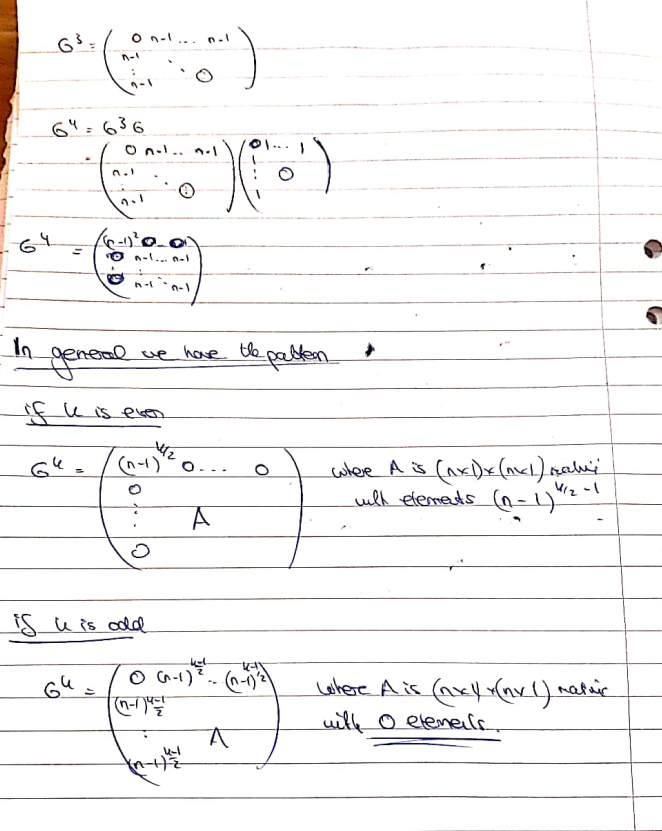 G³ = ( 0 n-1 ... n-1
n-1
⋮ ⋱ 0
n-1 )
G⁴ = G³G
= ( 0 n-1 .. n-1 ) ( 0 1 ... 1 )
n-1 ⋱ 1
⋮ 0 ⋮ 0
n-1 1
G⁴ = ( (n-1)² 0 .. 0
0 n-1 ... n-1
⋮ ⋮
0 n-1 ⋱ n-1 )
In general we have the pattern
if k is even
Gᵏ = ( (n-1)^k/2 0 ... 0 ) where A is (n×1)×(n×1) matrix
0 with elements (n-1)^k/2 -1
⋮ A
0
if k is odd
Gᵏ = ( 0 (n-1)^k-1/2 .. (n-1)^k-1/2 ) where A is (n×1)×(n×1) matrix
(n-1)^k-1/2 with 0 elements.
⋮ A
(n-1)^k-1/2